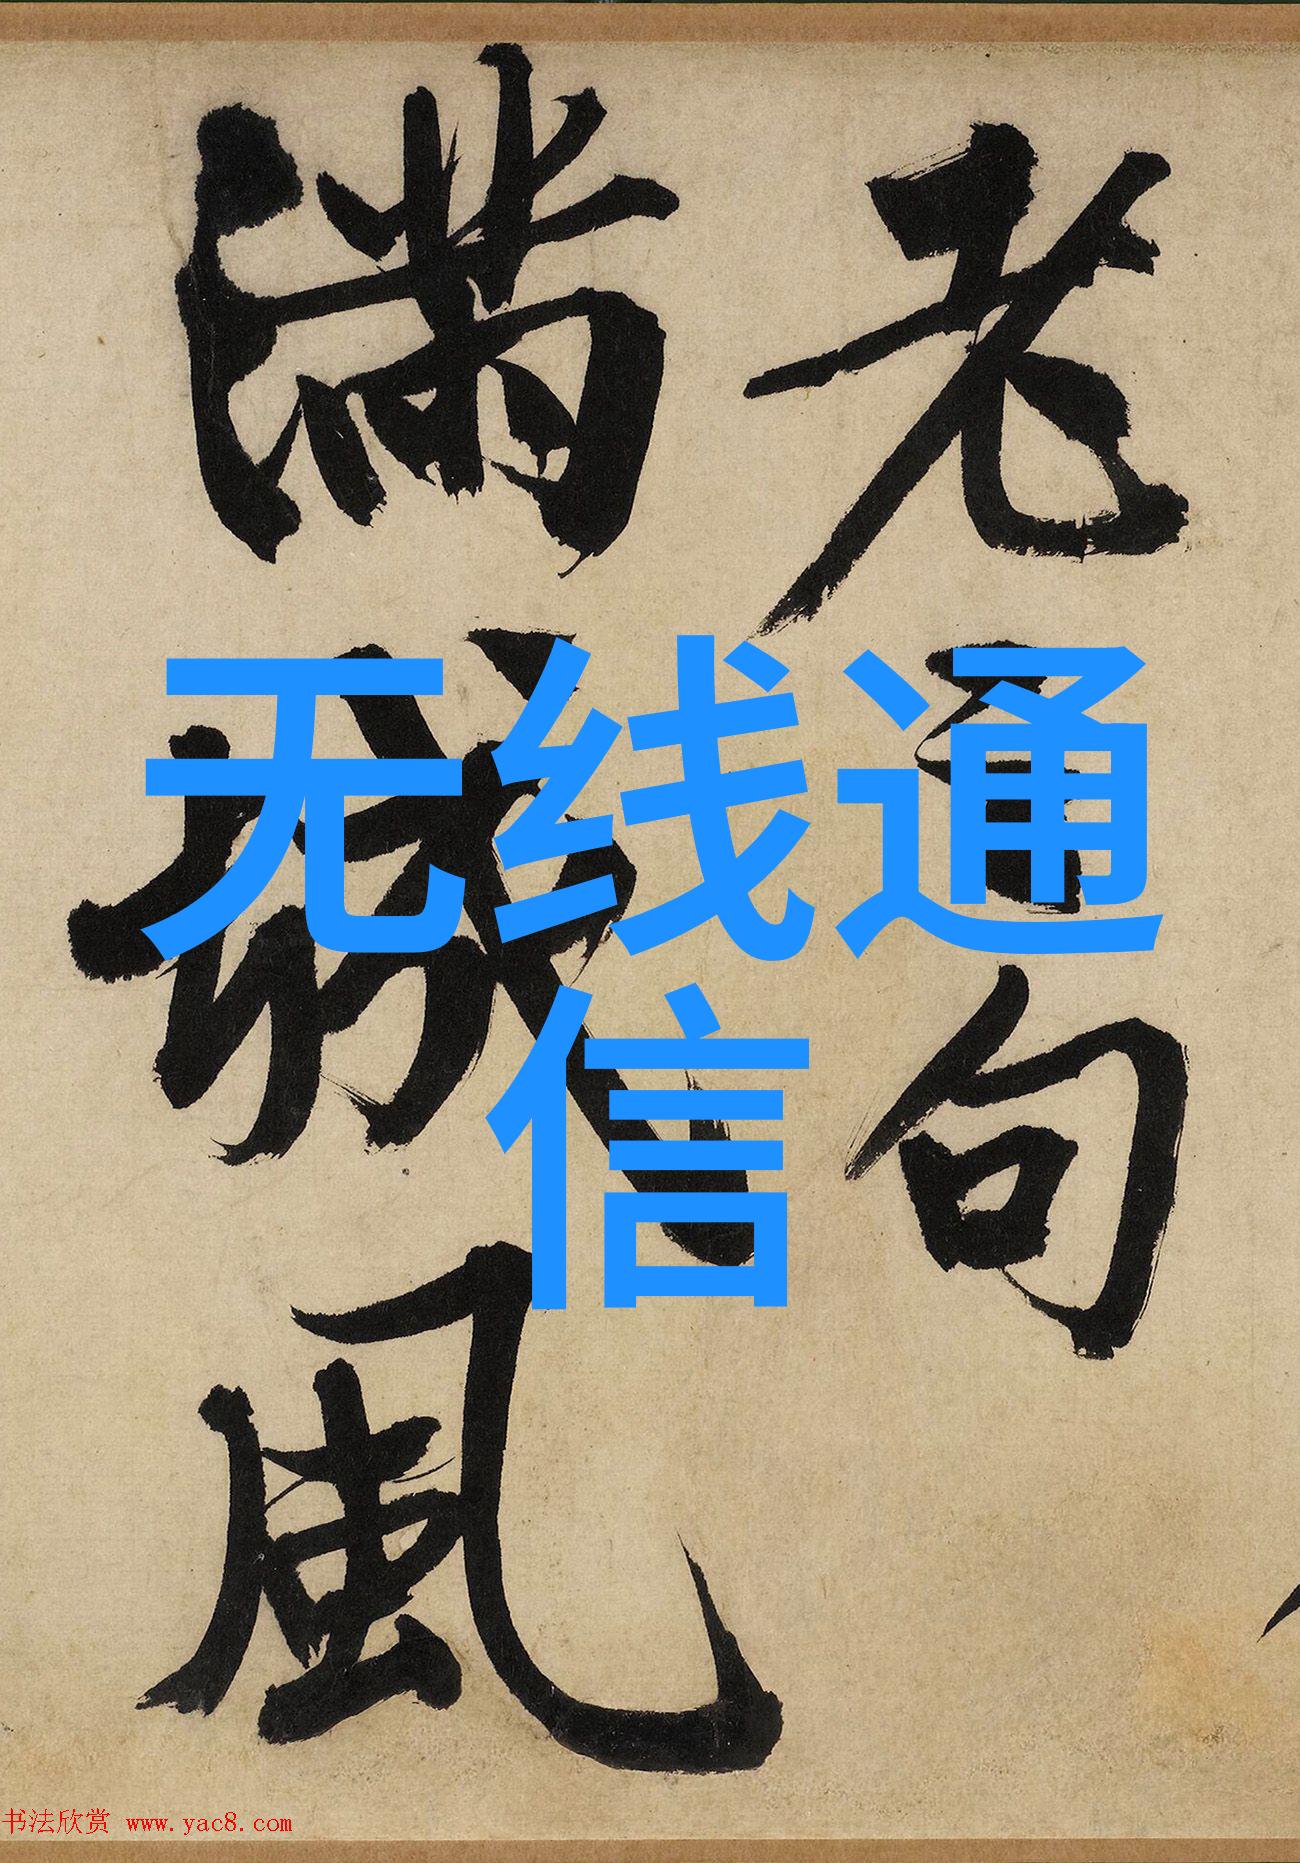 老句
滿城風
无线通
信
书法欣赏 www.yac8.com